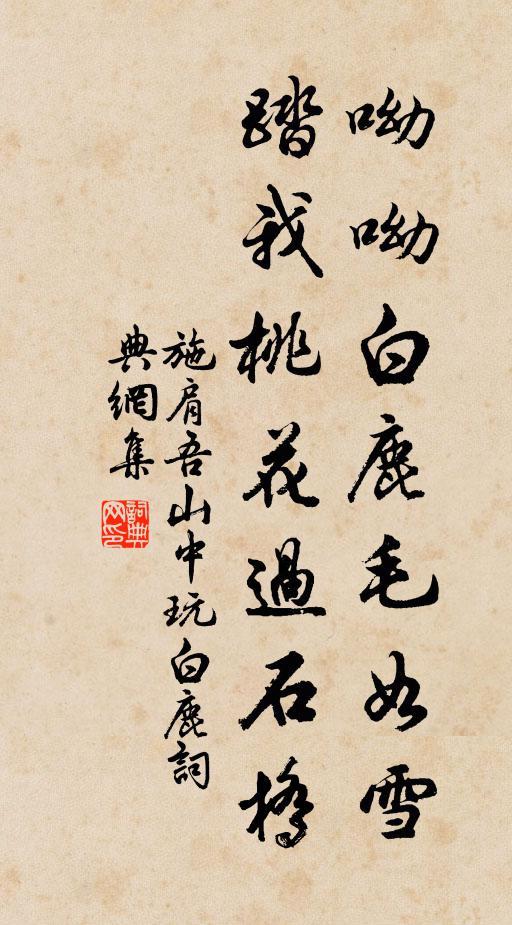 呦呦白鹿毛如雪
踏我桃花過石橋
施肩吾山中玩白鹿詞
典網集
詞典網印